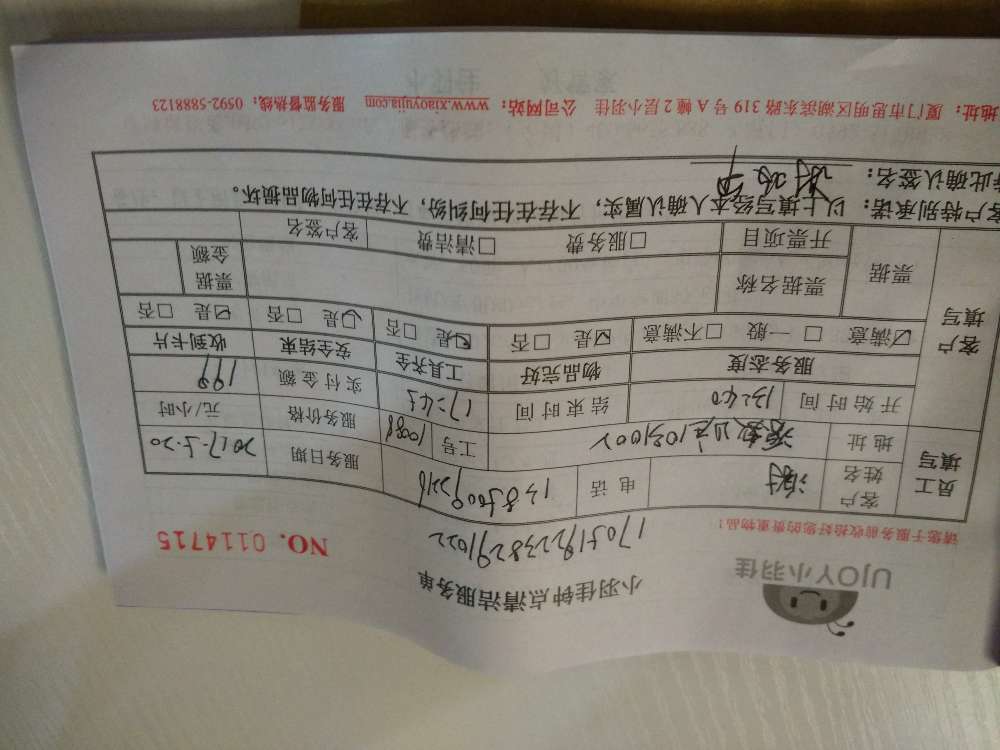 UJOY小羽佳
小羽佳钟点清洁服务单
1705192238291022
请您于服务前收拾好您的贵重物品！
NO. 0114715
员工填写
客户姓名 谢
电话 13850092216
服务日期 2017.5.20
地址
工号 10088
服务价格 元/小时
开始时间 13:40
结束时间 17:45
实付金额 199
客户填写
服务态度 物品完好 工具齐全 安全结束 收到卡片
☑满意 □一般 □不满意 ☑是 □否 ☑是 □否 ☑是 □否 ☑是 □否
票据 票据名称 票据金额
开票项目 □服务费 □清洁费 客户签名
客户特别承诺：以上填写经本人确认属实，不存在任何纠纷，不存在任何物品损坏。
特此确认签名：
地址：厦门市思明区湖滨东路 319 号 A 幢 2 层小羽佳 公司网站：www.xiaoyujia.com 服务监督热线：0592-5888123